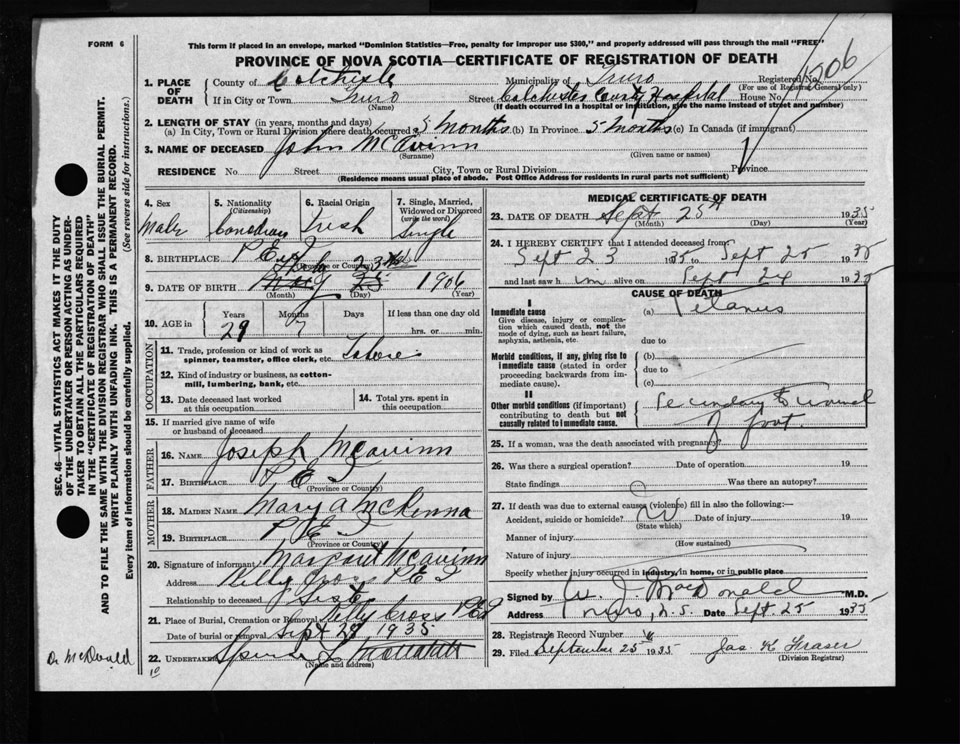 FORM 6
This form if placed in an envelope, marked "Dominion Statistics—Free, penalty for improper use $300," and properly addressed will pass through the mail "FREE"
PROVINCE OF NOVA SCOTIA—CERTIFICATE OF REGISTRATION OF DEATH
SEC. 46—VITAL STATISTICS ACT MAKES IT THE DUTY
OF THE UNDERTAKER OR PERSON ACTING AS UNDER-
TAKER TO OBTAIN ALL THE PARTICULARS REQUIRED
IN THE "CERTIFICATE OF REGISTRATION OF DEATH"
AND TO FILE THE SAME WITH THE DIVISION REGISTRAR WHO SHALL ISSUE THE BURIAL PERMIT.
WRITE PLAINLY WITH UNFADING INK. THIS IS A PERMANENT RECORD.
Every item of information should be carefully supplied. (See reverse side for instructions.)
1. PLACE OF DEATH
County of Colchester Municipality of Truro Registered No. 1206
(For use of Registrar General only)
If in City or Town Truro Street Colchester County Hospital House No
(Name) (If death occurred in a hospital or institution, give the name instead of street and number)
2. LENGTH OF STAY (in years, months and days)
(a) In City, Town or Rural Division where death occurred 5 months (b) In Province 5 months (c) In Canada (if immigrant)
3. NAME OF DECEASED John McAvinn
(Surname) (Given name or names)
RESIDENCE No Street City, Town or Rural Division Province
(Residence means usual place of abode. Post Office Address for residents in rural parts not sufficient)
4. Sex Male
5. Nationality (Citizenship) Canadian
6. Racial Origin Irish
7. Single, Married, Widowed or Divorced (write the word) Single
8. BIRTHPLACE P.E.I
(Province or Country)
9. DATE OF BIRTH 23 25 1906
(Month) (Day) (Year)
10. AGE in Years 29 Months 7 Days If less than one day old hrs. or min.
OCCUPATION
11. Trade, profession or kind of work as spinner, teamster, office clerk, etc. Laborer
12. Kind of industry or business, as cotton-mill, lumbering, bank, etc.
13. Date deceased last worked at this occupation
14. Total yrs. spent in this occupation
15. If married give name of wife or husband of deceased
FATHER
16. NAME Joseph McAvinn
17. BIRTHPLACE P.E.I
(Province or Country)
MOTHER
18. MAIDEN NAME Mary A McKenna
19. BIRTHPLACE P.E.I
(Province or Country)
20. Signature of informant Margaret McAvinn
Address Kelly Cross P.E.I
Relationship to deceased Sister
21. Place of Burial, Cremation or Removal Kelly Cross P.E.I
Date of burial or removal Sept 27 1935
22. UNDERTAKER
(Name and address)
Dr McDonald
10
MEDICAL CERTIFICATE OF DEATH
23. DATE OF DEATH Sept 25th 1935
(Month) (Day) (Year)
24. I HEREBY CERTIFY that I attended deceased from
Sept 23 1935 to Sept 25 1935
and last saw him alive on Sept 24 1935
CAUSE OF DEATH
I
Immediate cause
Give disease, injury or complication which caused death, not the mode of dying, such as heart failure, asphyxia, asthenia, etc.
(a) Tetanus
due to
Morbid conditions, if any, giving rise to immediate cause (stated in order proceeding backwards from immediate cause).
(b)
due to
(c)
II
Other morbid conditions (if important) contributing to death but not causally related to immediate cause.
Secondary to wound
of foot.
25. If a woman, was the death associated with pregnancy?
26. Was there a surgical operation? Date of operation 19
State findings Was there an autopsy?
27. If death was due to external causes (violence) fill in also the following:—
Accident, suicide or homicide? Date of injury 19
(State which)
Manner of injury
(How sustained)
Nature of injury
Specify whether injury occurred in industry, in home, or in public place
Signed by W. J. MacDonald M.D.
Address Truro, N.S. Date Sept. 25 1935
28. Registrar's Record Number
29. Filed September 25 1935 Jas K Fraser
(Division Registrar)